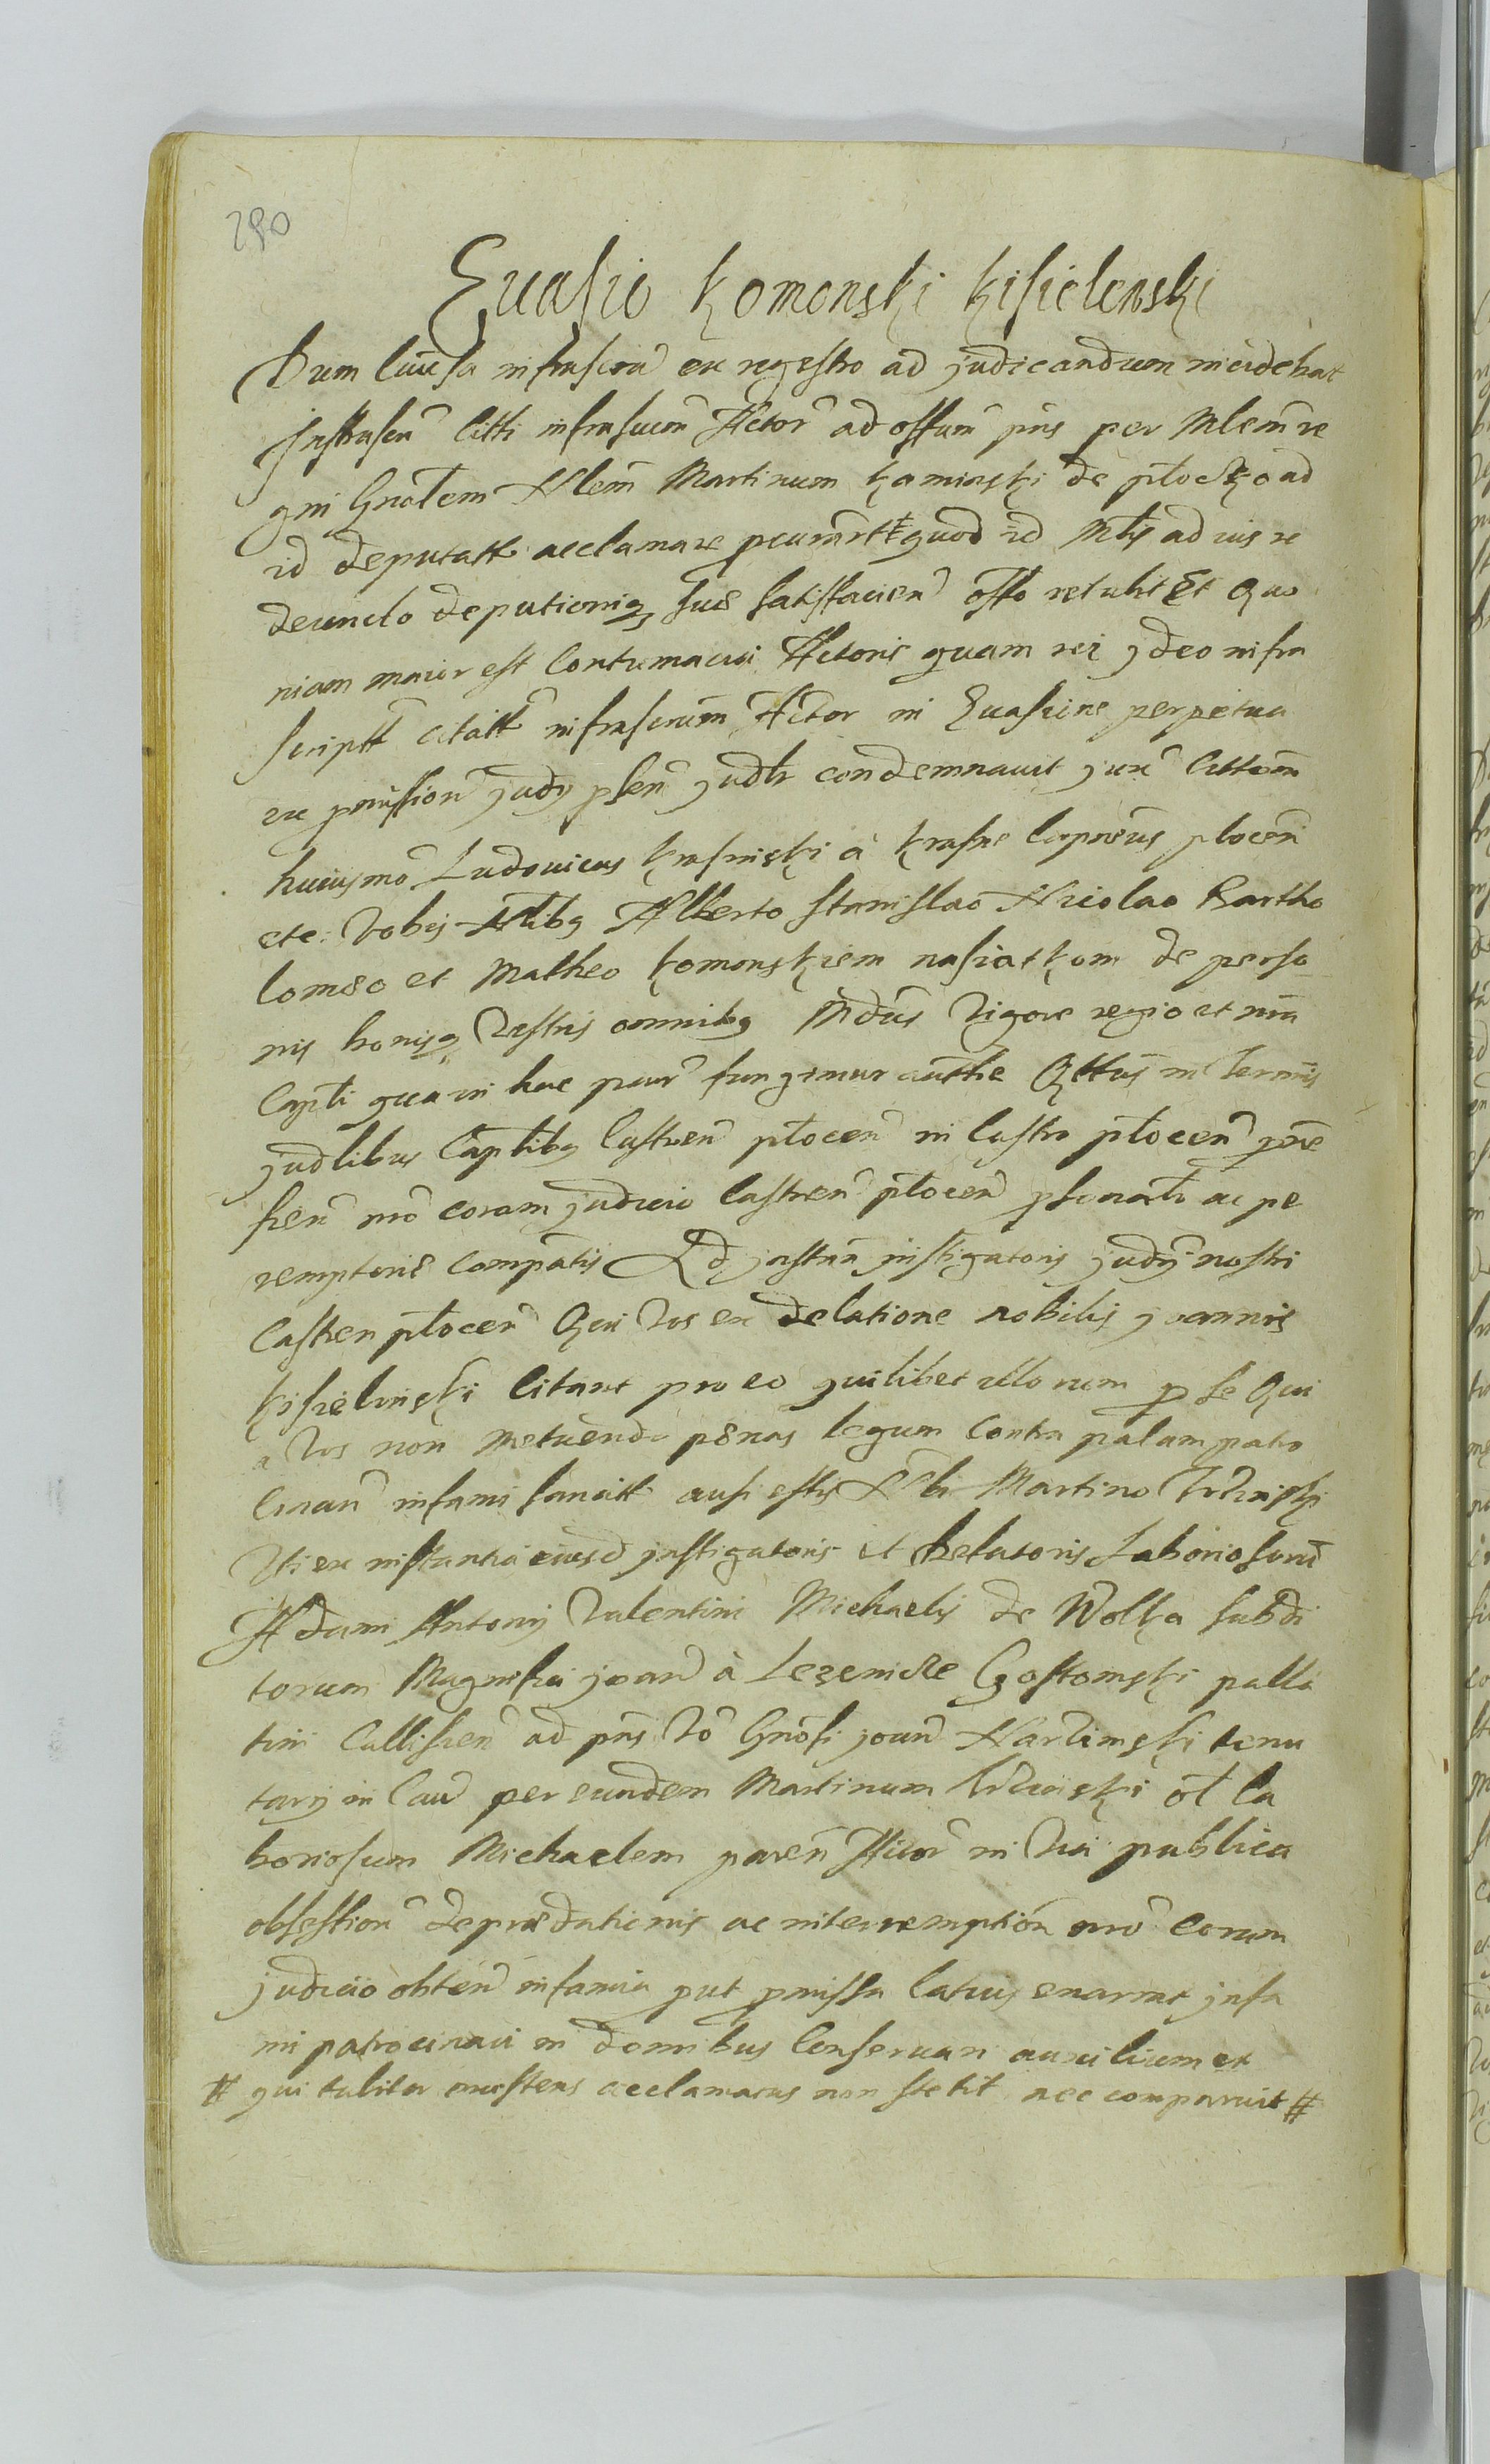 290
Euasio Komonski Kisielenski
Dum Causa infrascrã ex regestro ad judicandum incidebat
Infrascrã Citti infrascrm Actor ad offum pñs per Mlem re
gni Gnalem Nlem Martinum Kaminski de plocko ad
id deputatt acclamare pcurart # quod id Mlis ad ius re
deundo deputionisq suæ satisfacien offo retulit Et Quo
niam maior est Contumacia Actoris quam rei jdeo infra
scriptt citatt infrascrm Actor in Euasione perpetua
ex pmission judij psen judlr condemnauit jux Cittem
huiusmo Ludouicus Krasinski à Krasne Capneus plocen
etc: Vobis Nlibq Alberto Stanislao Nicolao Bartho
lomeo et Matheo Komonskiem nasiatkom de perso
nis bonisq Vestris omnibq Mdus Vigore regio et mea
Capti qua in hac parr fungimur autthe Qttus in Terminis
judlibus Captlibq Castren plocen in Castro plocen prae
sien mo coram judicio Castren plocen psonalr ac pe
remptorie Compatis Ad jnstan jnstigatoris judij nostri
Castren plocen Qui Vos ex delatione nobilis joannis
Kisielinski Citant pro eo quilibet illorum p se Qui
a Vos non metuendo pænas legum Contra palam patro
cinan infami sanitt ausi estis Nbi Martino
Vti ex instantia eiusd jnstigatoris et Delatoris Laboriosorũ
Adami Antonij Valentini Michaelis de Wolka subdi
torum Magnifici joan à Lezenicze Gostomski palla
tini Callisien ad pñs Vo Gnosi joan Narzimski tenu
tarij in Cau per eundem Martinum ol La
boriosum Michaelem paren Actor in Via publica
obsession deprædationis ac interremption mo coram
judicio obten infamia put pmissa latius enarrat jnfa
mi patrocinari in domibus Conseruari auxilium et
# qui taliter existens acclamatus non stetit nec comparuit #